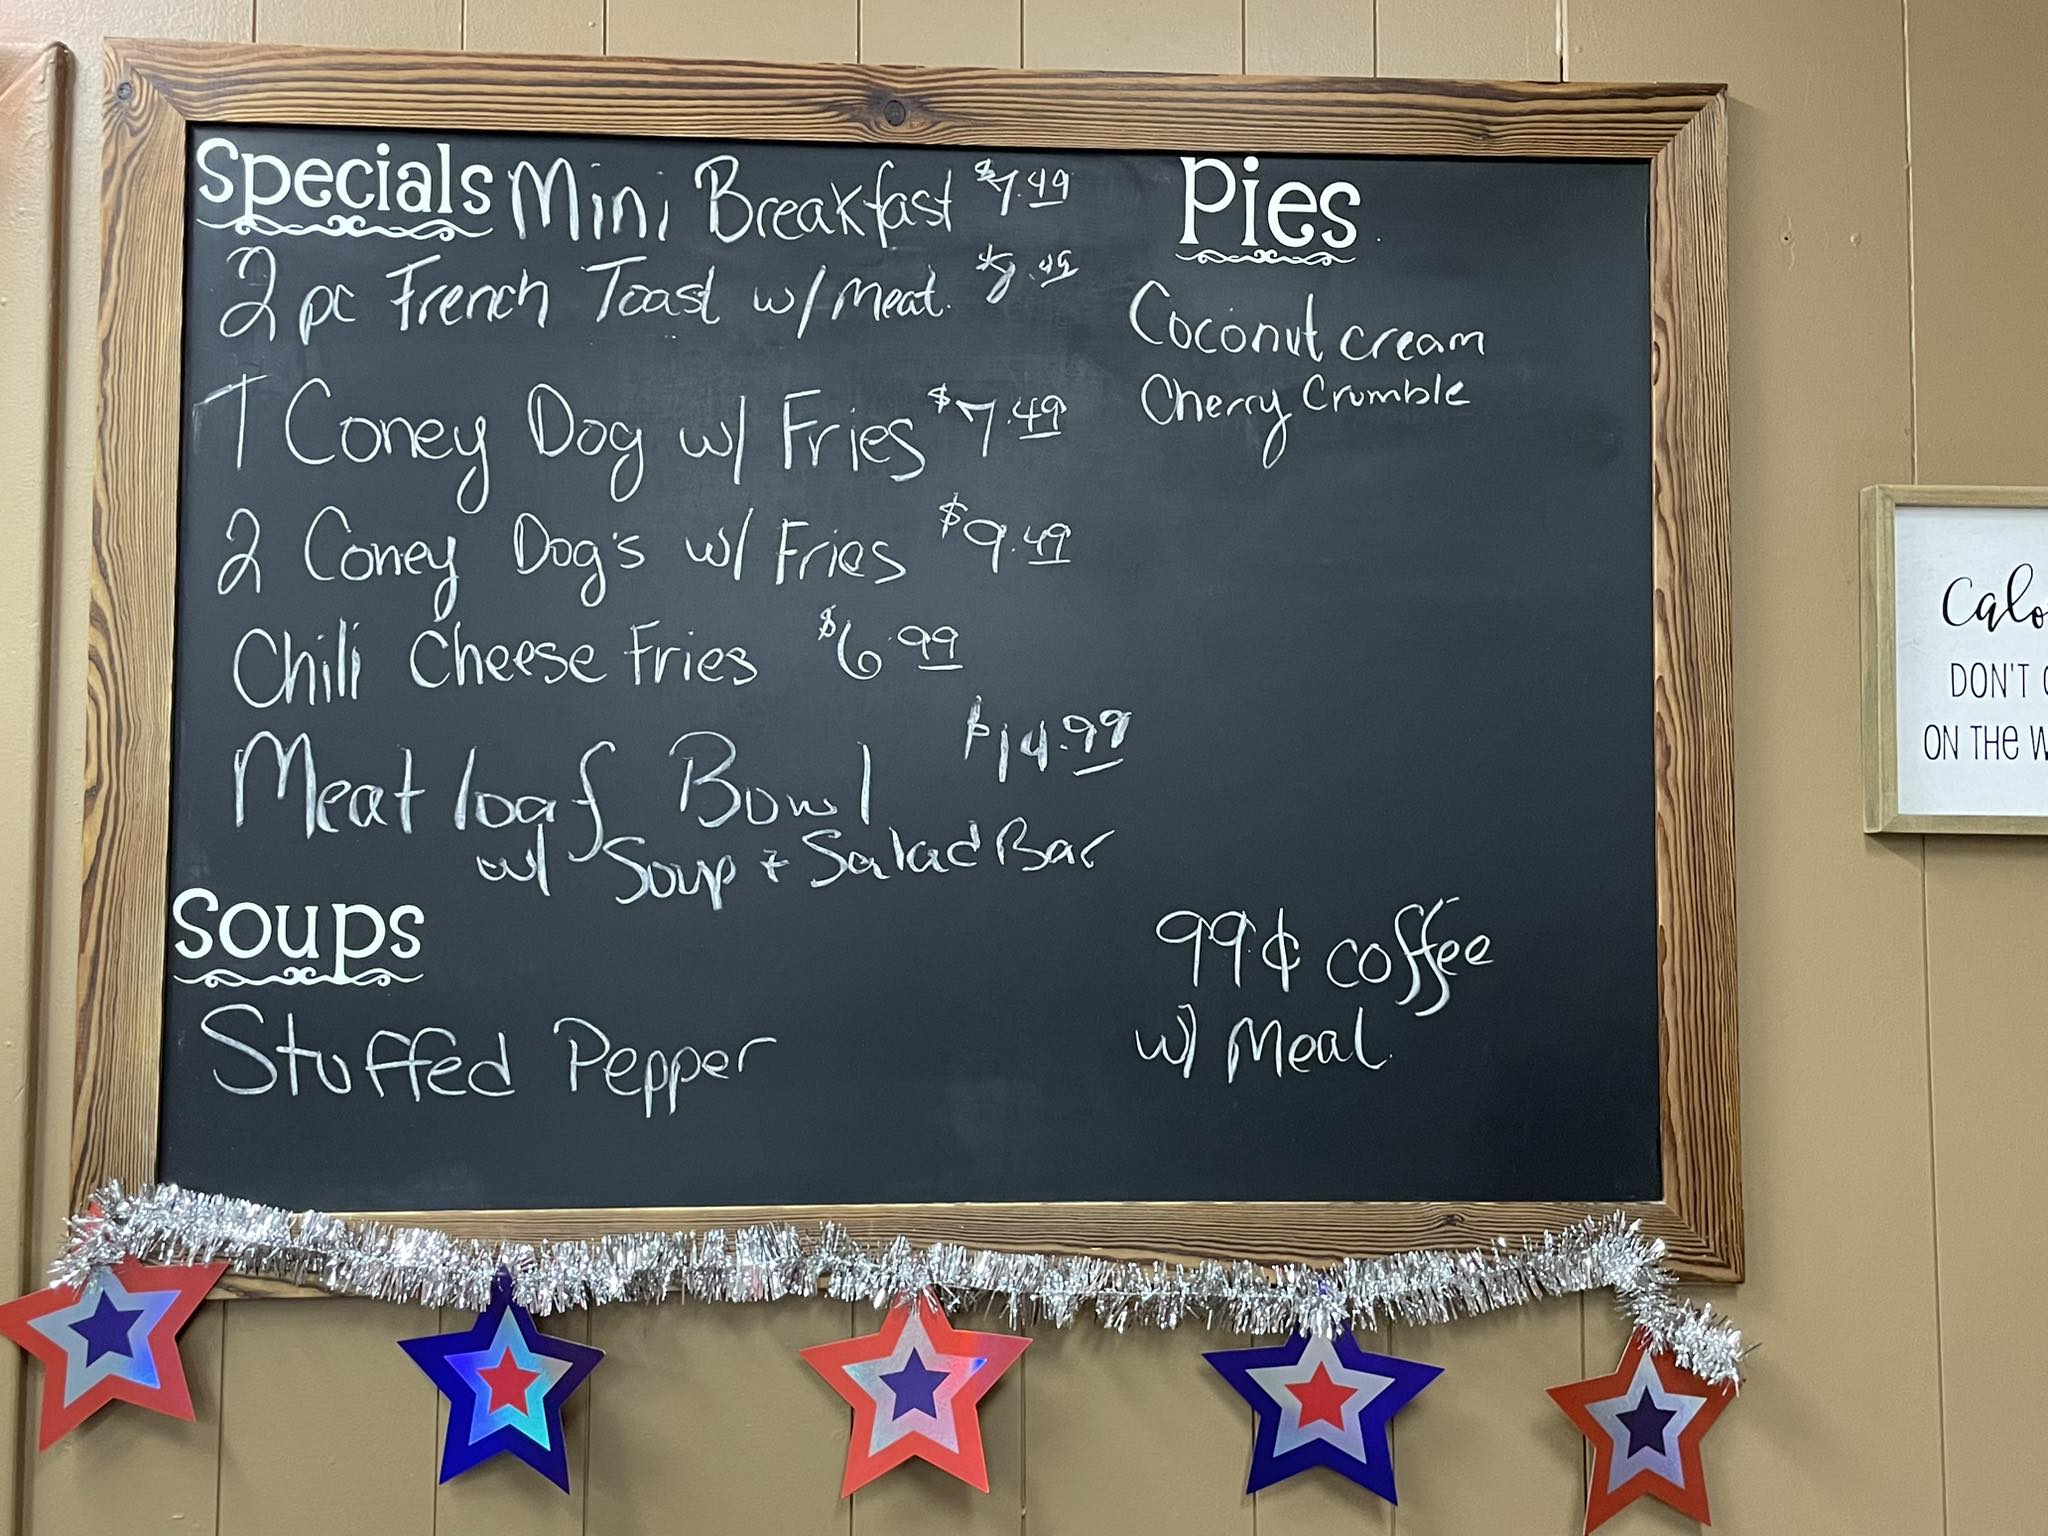 Specials Mini Breakfast $7.49
2 pc French Toast w/ Meat $8.49
1 Coney Dog w/ Fries $7.49
2 Coney Dog's w/ Fries $9.49
Chili Cheese Fries $6.99
Meat loaf Bowl $14.99
w/ Soup + Salad Bar
Soups
Stuffed Pepper
Pies
Coconut cream
Cherry Crumble
99¢ coffee
w/ Meal
DON'T
ON THE